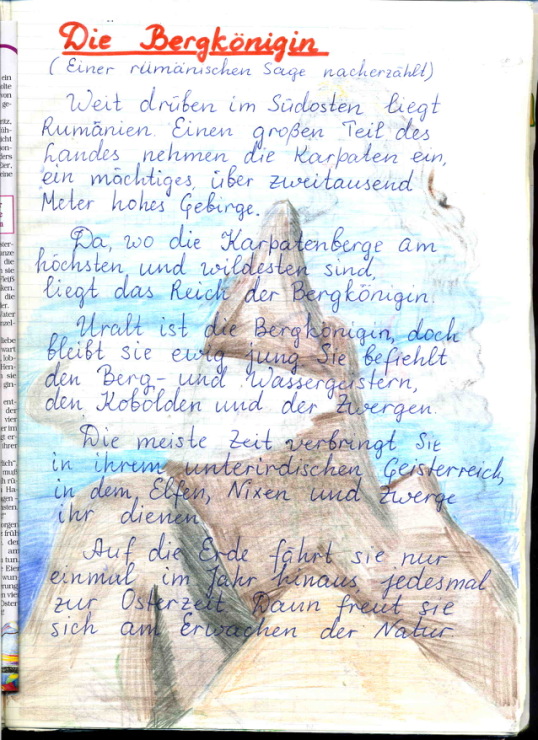 Die Bergkönigin
(Einer rümänischen Sage nacherzählt)
Weit drüben im Südosten liegt
Rumänien. Einen großen Teil des
Landes nehmen die Karpaten ein,
ein mächtiges, über zweitausend
Meter hohes Gebirge.
Da, wo die Karpatenberge am
höchsten und wildesten sind,
liegt das Reich der Bergkönigin.
Uralt ist die Bergkönigin, doch
bleibt sie ewig jung Sie befiehlt
den Berg- und Wassergeistern,
den Kobolden und der Zwergen.
Die meiste Zeit verbringt Sie
in ihrem unterirdischen Geisterreich,
in dem Elfen, Nixen und Zwerge
ihr dienen
Auf die Erde fährt sie nur
einmal im Jahr hinaus jedesmal
zur Osterzeit Dann freut sie
sich am Erwachen der Natur